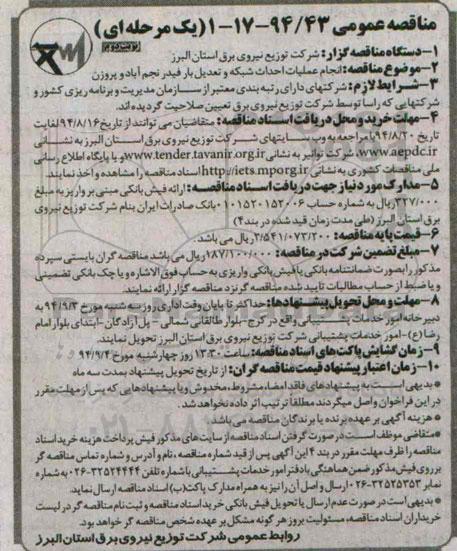 مناقصه عمومی ۹۴/۴۳-۱۷-۱ (یک مرحله ای)
نوبت دوم
۱-دستگاه مناقصه گزار: شرکت توزیع نیروی برق استان البرز
۲-موضوع مناقصه: انجام عملیات احداث شبکه و تعدیل بار فیدر نجم آباد و پروژن
۳- شرایط لازم: شرکتهای دارای رتبه بندی معتبر از سازمان مدیریت و برنامه ریزی کشور و
شرکتهایی که راسا توسط شرکت توزیع نیروی برق تعیین صلاحیت گردیده اند.
۴-مهلت خرید و محل دریافت اسناد مناقصه: متقاضیان می توانند از تاریخ ۹۴/۸/۱۶ لغایت
تاریخ ۹۴/۸/۲۰ با مراجعه به وب سایتهای شرکت توزیع نیروی برق استان البرز به نشانی
www.aepdc.ir، شرکت توانیر به نشانی www.tender.tavanir.org.ir و یا پایگاه اطلاع رسانی
ملی مناقصات کشوری به نشانی http://iets.mporg.ir اسناد مناقصه را مشاهده و اخذ نمایند.
۵-مدارک مورد نیاز جهت دریافت اسناد مناقصه: ارائه فیش بانکی مبنی بر واریز به مبلغ
۳۲۷/۰۰۰ ریال به شماره حساب ۰۱۰۱۵۲۰۱۵۲۰۰۶ بانک صادرات ایران بنام شرکت توزیع نیروی
برق استان البرز (طی مدت زمان قید شده در بند ۴)
۶-قیمت پایه مناقصه: ۳/۵۴۱/۰۷۳/۲۰۰ ریال می باشد.
۷-مبلغ تضمین شرکت در مناقصه: ۱۸۷/۱۰۰/۰۰۰ ریال می باشد مناقصه گران بایستی سپرده
مذکور را بصورت ضمانتنامه بانکی یا فیش بانکی واریزی به حساب فوق الاشاره و یا چک بانکی تضمینی
و یا ضبط از حساب مطالبات تایید شده مناقصه گر نزد مناقصه گزار ارائه نمایند.
۸-مهلت و محل تحویل پیشنهادها: حداکثر تا پایان وقت اداری روز سه شنبه مورخ ۹۴/۹/۳ به
دبیرخانه امور خدمات پشتیبانی واقع در کرج-بلوار طالقانی شمالی - پل آزادگان - ابتدای بلوار امام
رضا (ع)-امور خدمات پشتیبانی شرکت توزیع نیروی برق استان البرز تحویل نمایند.
۹-زمان گشایش پاکت های اسناد مناقصه: ساعت ۱۳:۳۰ روز چهارشنبه مورخ ۹۴/۹/۴
۱۰-زمان اعتبار پیشنهاد قیمت مناقصه گران: از تاریخ تحویل پیشنهاد بمدت سه ماه
* بدیهی است به پیشنهادهای فاقد امضاء، مشروط، مخدوش و یا پیشنهادهایی که پس از مهلت مقرر
در این فراخوان واصل میگردند مطلقاً ترتیب اثر داده نخواهد شد.
* هزینه آگهی بر عهده برنده یا برندگان مناقصه می باشد.
* متقاضی موظف است در صورت گرفتن اسناد مناقصه از سایت های مذکور فیش پرداخت هزینه خرید اسناد
مناقصه را ظرف مهلت مقرر در بند ۴ این آگهی پس از قید شماره مناقصه، نام و آدرس و شماره تماس مناقصه گر
بر روی فیش مذکور ضمن هماهنگی با دفتر امور خدمات پشتیبانی با شماره تلفن ۳۲۵۲۴۴۴۴-۰۲۶ به شماره
نمابر ۳۲۵۲۵۳۵۳-۰۲۶ ارسال و اصل آن را نیز به همراه مدارک پاکت (ب) اسناد مناقصه ارسال نماید.
* بدیهی است در صورت عدم ارسال یا تحویل فیش بانکی خرید اسناد مناقصه و ثبت نام مناقصه گر در لیست
خریداران اسناد مناقصه، مسئولیت بروز هر گونه مشکل بر عهده شخص مناقصه گر خواهد بود.
روابط عمومی شرکت توزیع نیروی برق استان البرز